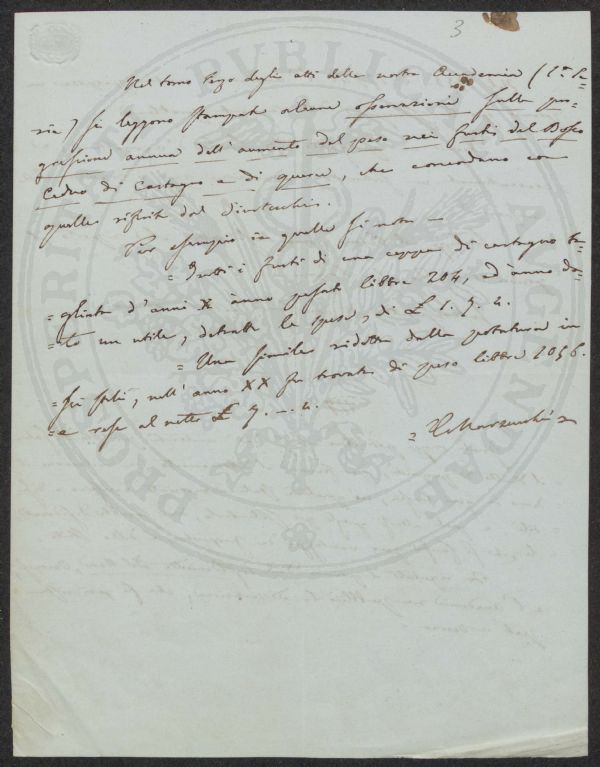 3
Nel tomo terzo degli atti della nostra Accademia (1.ª Se-
rie) si leggono stampate alcune osservazioni sulla pro-
gressione annua dell'aumento del peso nei frusti del Bosco
Ceduo di Castagno e di querce, che concordano con
quelle riferite dal
Per esempio in quelle si nota —
= Tutti i frusti di una ceppa di castagno ta-
= gliata d'anni X anno pesati libbre 204, ed anno da-
= to un utile, detratte le spese, di £ 1. 7. 4.
= Una simile ridotta dalla potatura in
= sei , nell'anno XX fu trovata di peso libbre 2056.
= e rese al netto £ 7. — 4.
PROSPERITATI PVBLICAE AVGENDAE